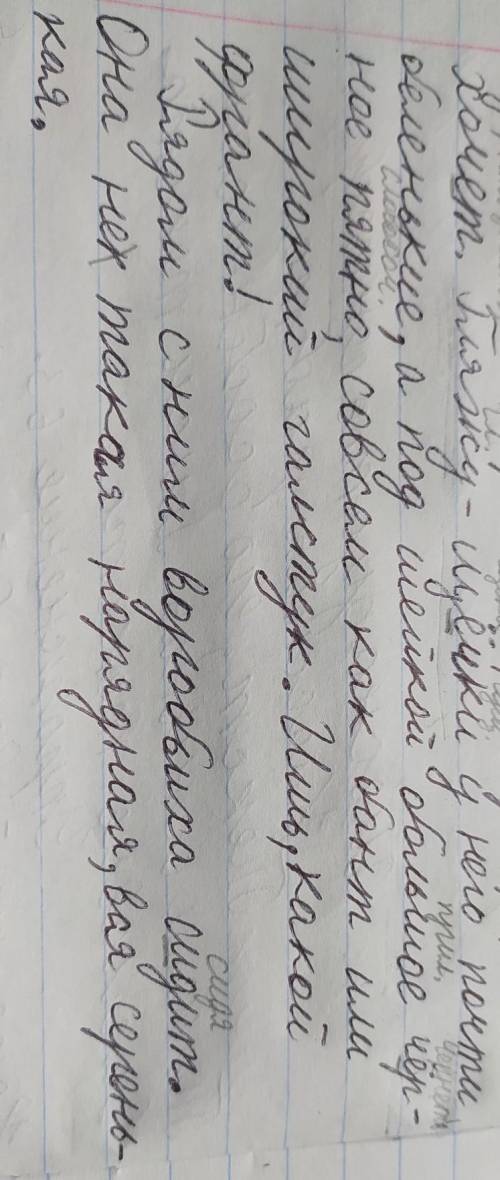 хочет. Гляжу - щёчки у него почти
беленькие, а под шейкой большое чёр-
ное пятно, совсем как бант или
широкий галстук. Ишь, какой
франт!
Рядом с ним воробьиха сидит.
Она не такая нарядная, вся серень-
кая.